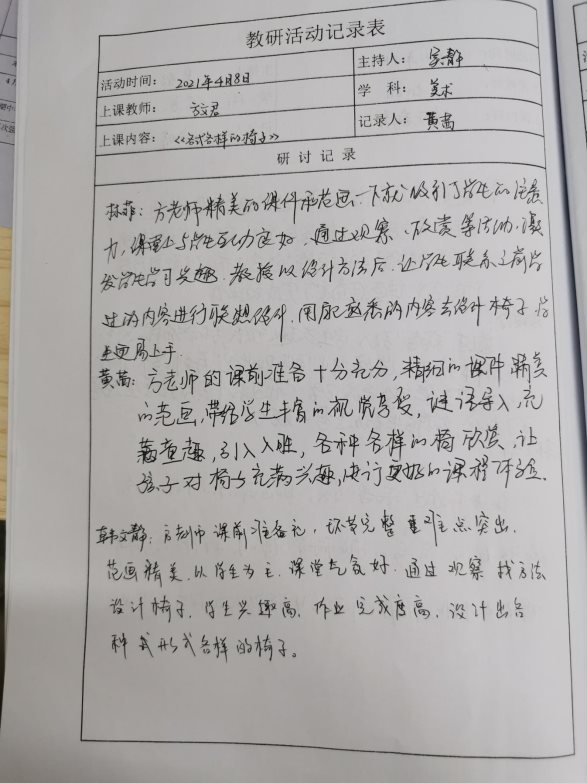 教研活动记录表
活动时间： 2021年4月8日 主持人： 吴静
上课教师： 方文君 学 科： 美术
上课内容： 《各式各样的椅子》 记录人： 黄茜
研 讨 记 录
林菲：方老师精美的课件和范画一下就吸引了学生的注意
力，课堂上与学生互动良好，通过观察、欣赏等活动，激
发学生学习兴趣，教授以设计方法后，让学生联系之前学
过的内容进行联想设计，用那熟悉的内容去设计椅子，学
生更易上手
黄茜：方老师的课前准备十分充分，精细的课件精美
的范画，带给学生丰富的视觉享受，谜语导入，充
满童趣，引人入胜，各种各样的椅欣赏，让
孩子对椅子充满兴趣，使之更好的课程体验
韩文静：方老师课前准备充，环节完整重难点突出，
范画精美，以学生为主，课堂气氛好，通过观察找方法
设计椅子，学生兴趣高，作业完成度高，设计出各
种式形式各样的椅子。